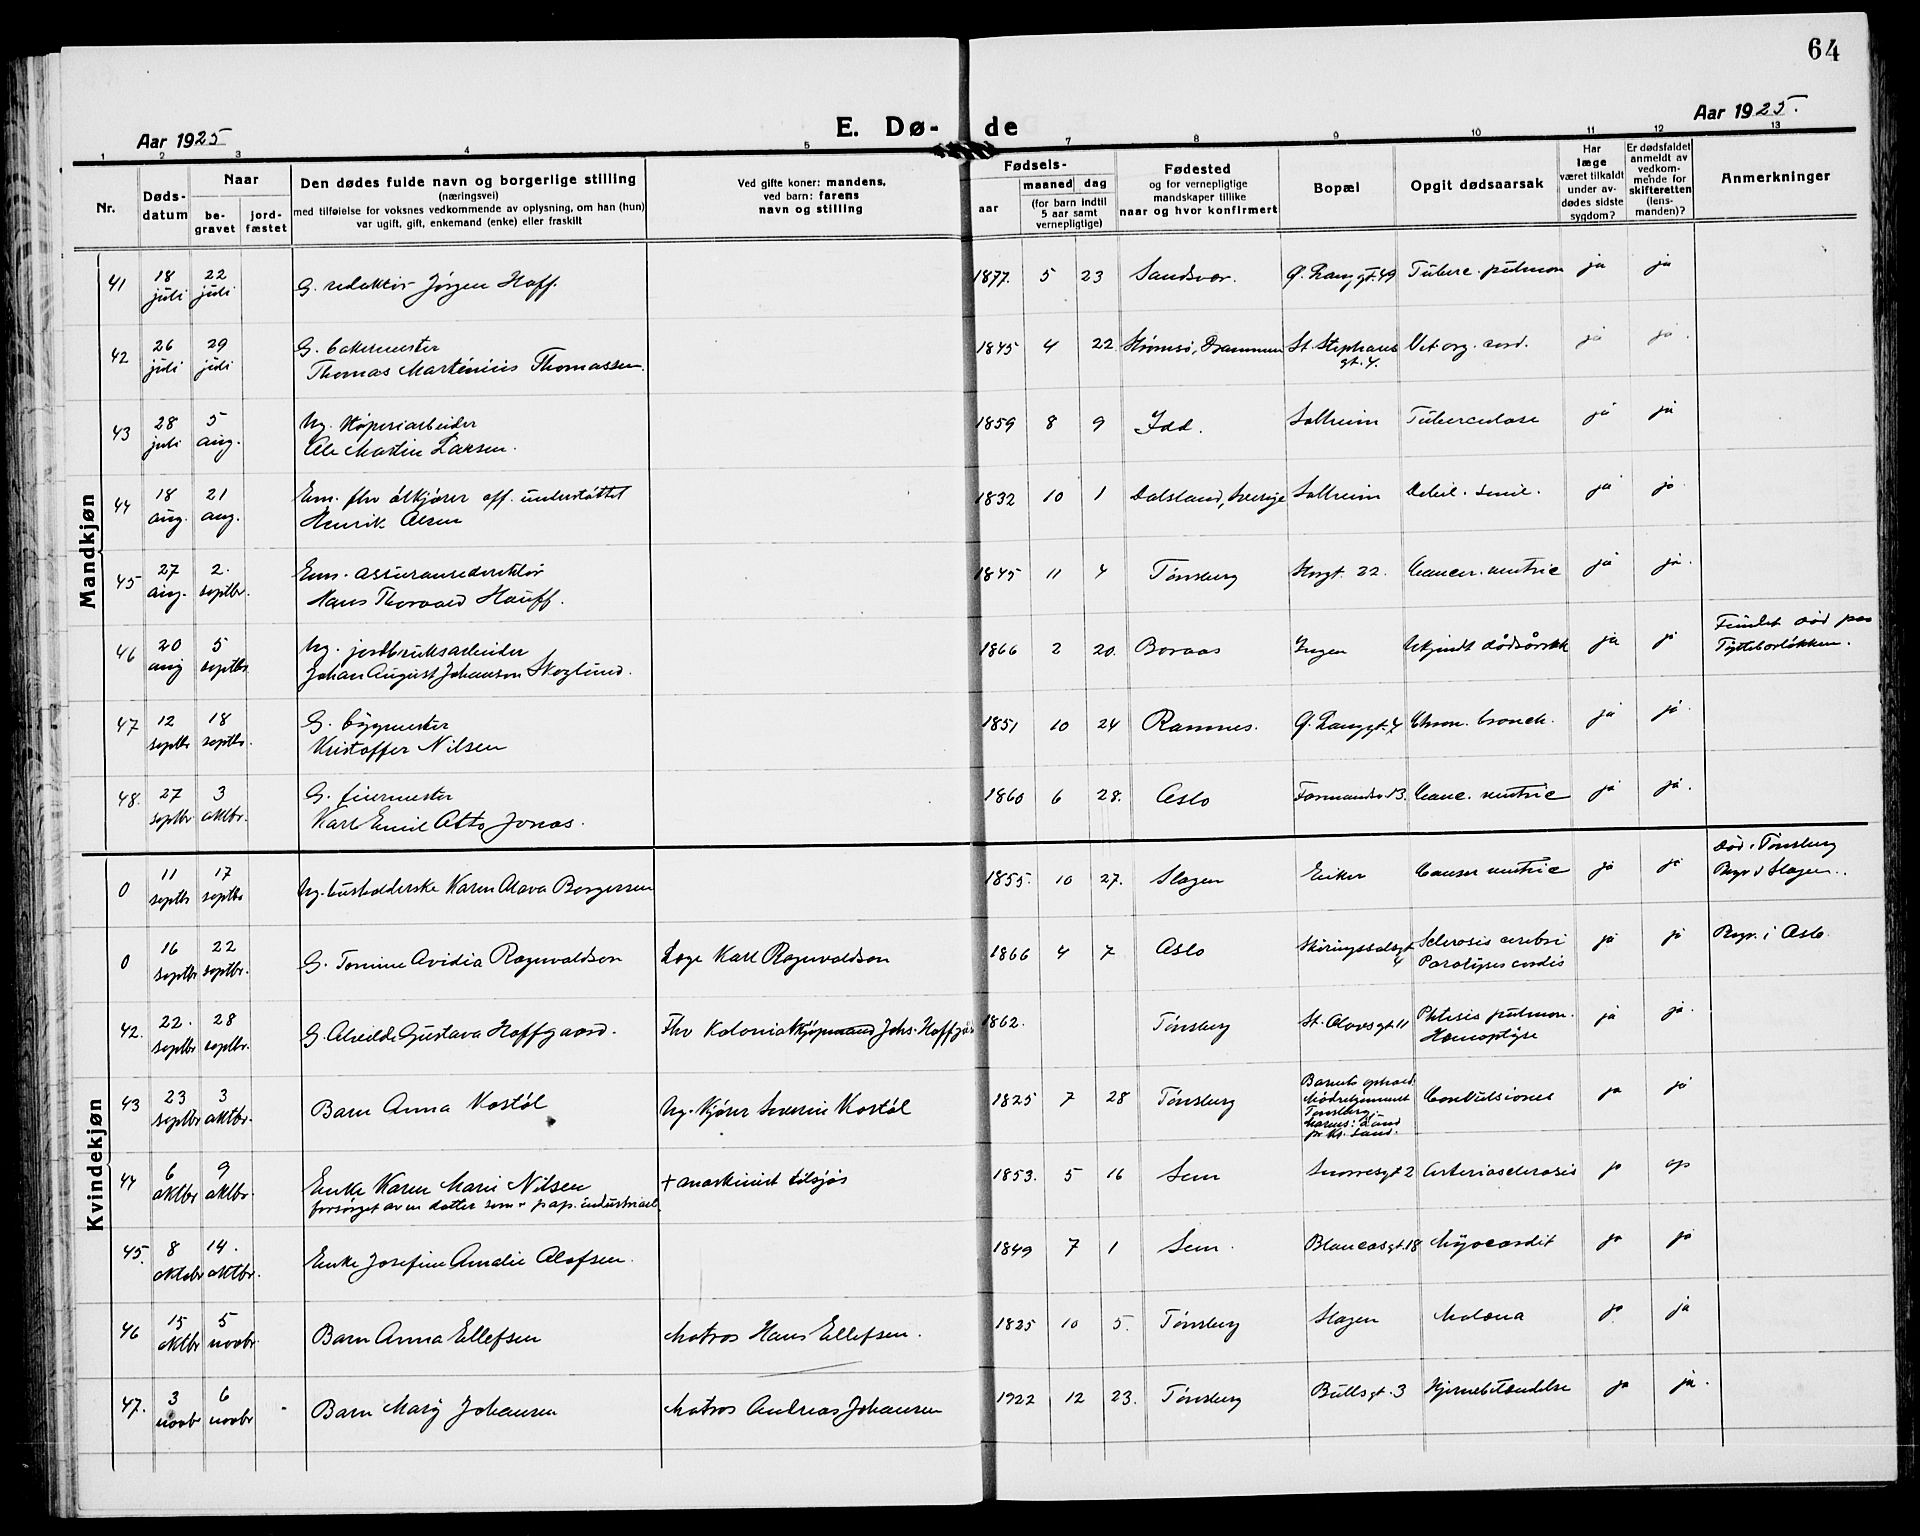 64
Aar 1925
E. Dø- de
Aar 1925.
1 2 3 4 5 7 8 9 10 11 12 13
Nr.
Døds-
datum
Naar
be-
gravet
jord-
fæstet
Den dødes fulde navn og borgerlige stilling
(næringsvei)
med tilføielse for voksnes vedkommende av oplysning, om han (hun)
var ugift, gift, enkemand (enke) eller fraskilt
Ved gifte koner: mandens,
ved barn: farens
navn og stilling
Fødsels-
aar
maaned dag
(for barn indtil
5 aar samt
vernepligtige)
Fødested
og for vernepligtige
mandskaper tillike
naar og hvor konfirmert
Bopæl
Opgit dødsaarsak
Har
læge
været tilkaldt
under av-
dødes sidste
sygdom?
Er dødsfaldet
anmeldt av
vedkom-
mende for
skifteretten
(lens-
manden)?
Anmerkninger
Mandkjøn
41 18 juli 22 juli G. redaktør Jørgen Hoff. 1877. 5 23 Sandsvær. Ø. Langgt. 49 Tuberc. pulmon ja ja
42 26 juli 29 juli G. bakermester
Thomas Martinius Thomassen. 1845 4 22 Strømsø, Drammen St. Stephans gt. 4. Vit. org. cord. ja ja.
43 28 juli 5 aug. Ug. støperiarbeider
Ole Martin Larsen. 1859 8 9 Idd. Solheim Tuberculose ja ja
44 18 aug. 21 aug. Em. fhv ølkjører off. understøttet
Henrik Olsen 1832 10 1 Dalsland, Sverige Solheim Debil. senil. ja ja
45 27 aug. 2. septbr. Em. assurancedirektør
Hans Thorvald Hauff. 1845 11 4 Tønsberg Storgt. 22. Cancer. ventric ja ja.
46 20 aug 5 septbr. Ug. jordbruksarbeider
Johan August Johanson Skoglund. 1866 2 20. Boraas Ingen Ukjendt dødsårsak ja ja Fundet død paa
47 12 septbr 18 septbr. G. byggmester
Kristoffer Nilsen 1851 10 24 Ramnes. Ø. Langgt. 4 Chron. bronch. ja ja
48. 27 septbr. 3 oktbr. G. feiermester
Karl Emil Otto Jonas. 1860 6 28. Oslo Canc. ventric ja ja.
Kvindekjøn
0 11 septbr 17 septbr Ug. husholderske Karen Olava Borgersen 1855. 10 27. Slagen Eiker Cancer ventric ja ja Død i Tønsberg
Begr. i Slagen.
0 16 septbr. 22 septbr. G. Tomine Ovidia Rognvaldson Læge Karl Rognvaldson 1866 4 7 Oslo Skiringssalsgt 4 Sclerosis cerebri
Paralysis cordis ja ja Begr. i Oslo.
42. 22. septbr. 28 septbr. G. Alvilde Gustava Hoffgaard. Fhv Kolonialkjøpmand Johs. Hoffg 1862. Tønsberg St. Olavsgt. 11 Phtisis pulmon.
Hæmoptyse ja ja.
43 23 septbr 3 oktbr. Barn Anna Kostøl Ug. kjører Severin Kostøl 1825 7 28 Tønsberg Barnets ophold:
Mødrehjemmet
Tønsberg
Convulsiones ja ja
44 6 oktbr 9 oktbr. Enke Karen Marie Nilsen
forsørget av en datter som + pap. industriarb. + maskinist tilsjøs 1853. 5 16 Sem Snorresgt 2 Arteriosclerosis ja
45. 8 oktobr 14. oktbr. Enke Josefine Amalie Olafsen. 1849 7 1 Sem. Blancasgt. 18 Myocardit ja ja
46 15 oktbr 5 novbr. Barn Anna Ellefsen Matros Hans Ellefsen. 1825 10 5. Tønsberg Slagen Melæna ja ja
47. 3 novbr 6 novbr Barn Mary Johansen Matros Andreas Johansen 1922 12 23. Tønsberg Bullsgt. 3 Hjernebetændelse ja ja.